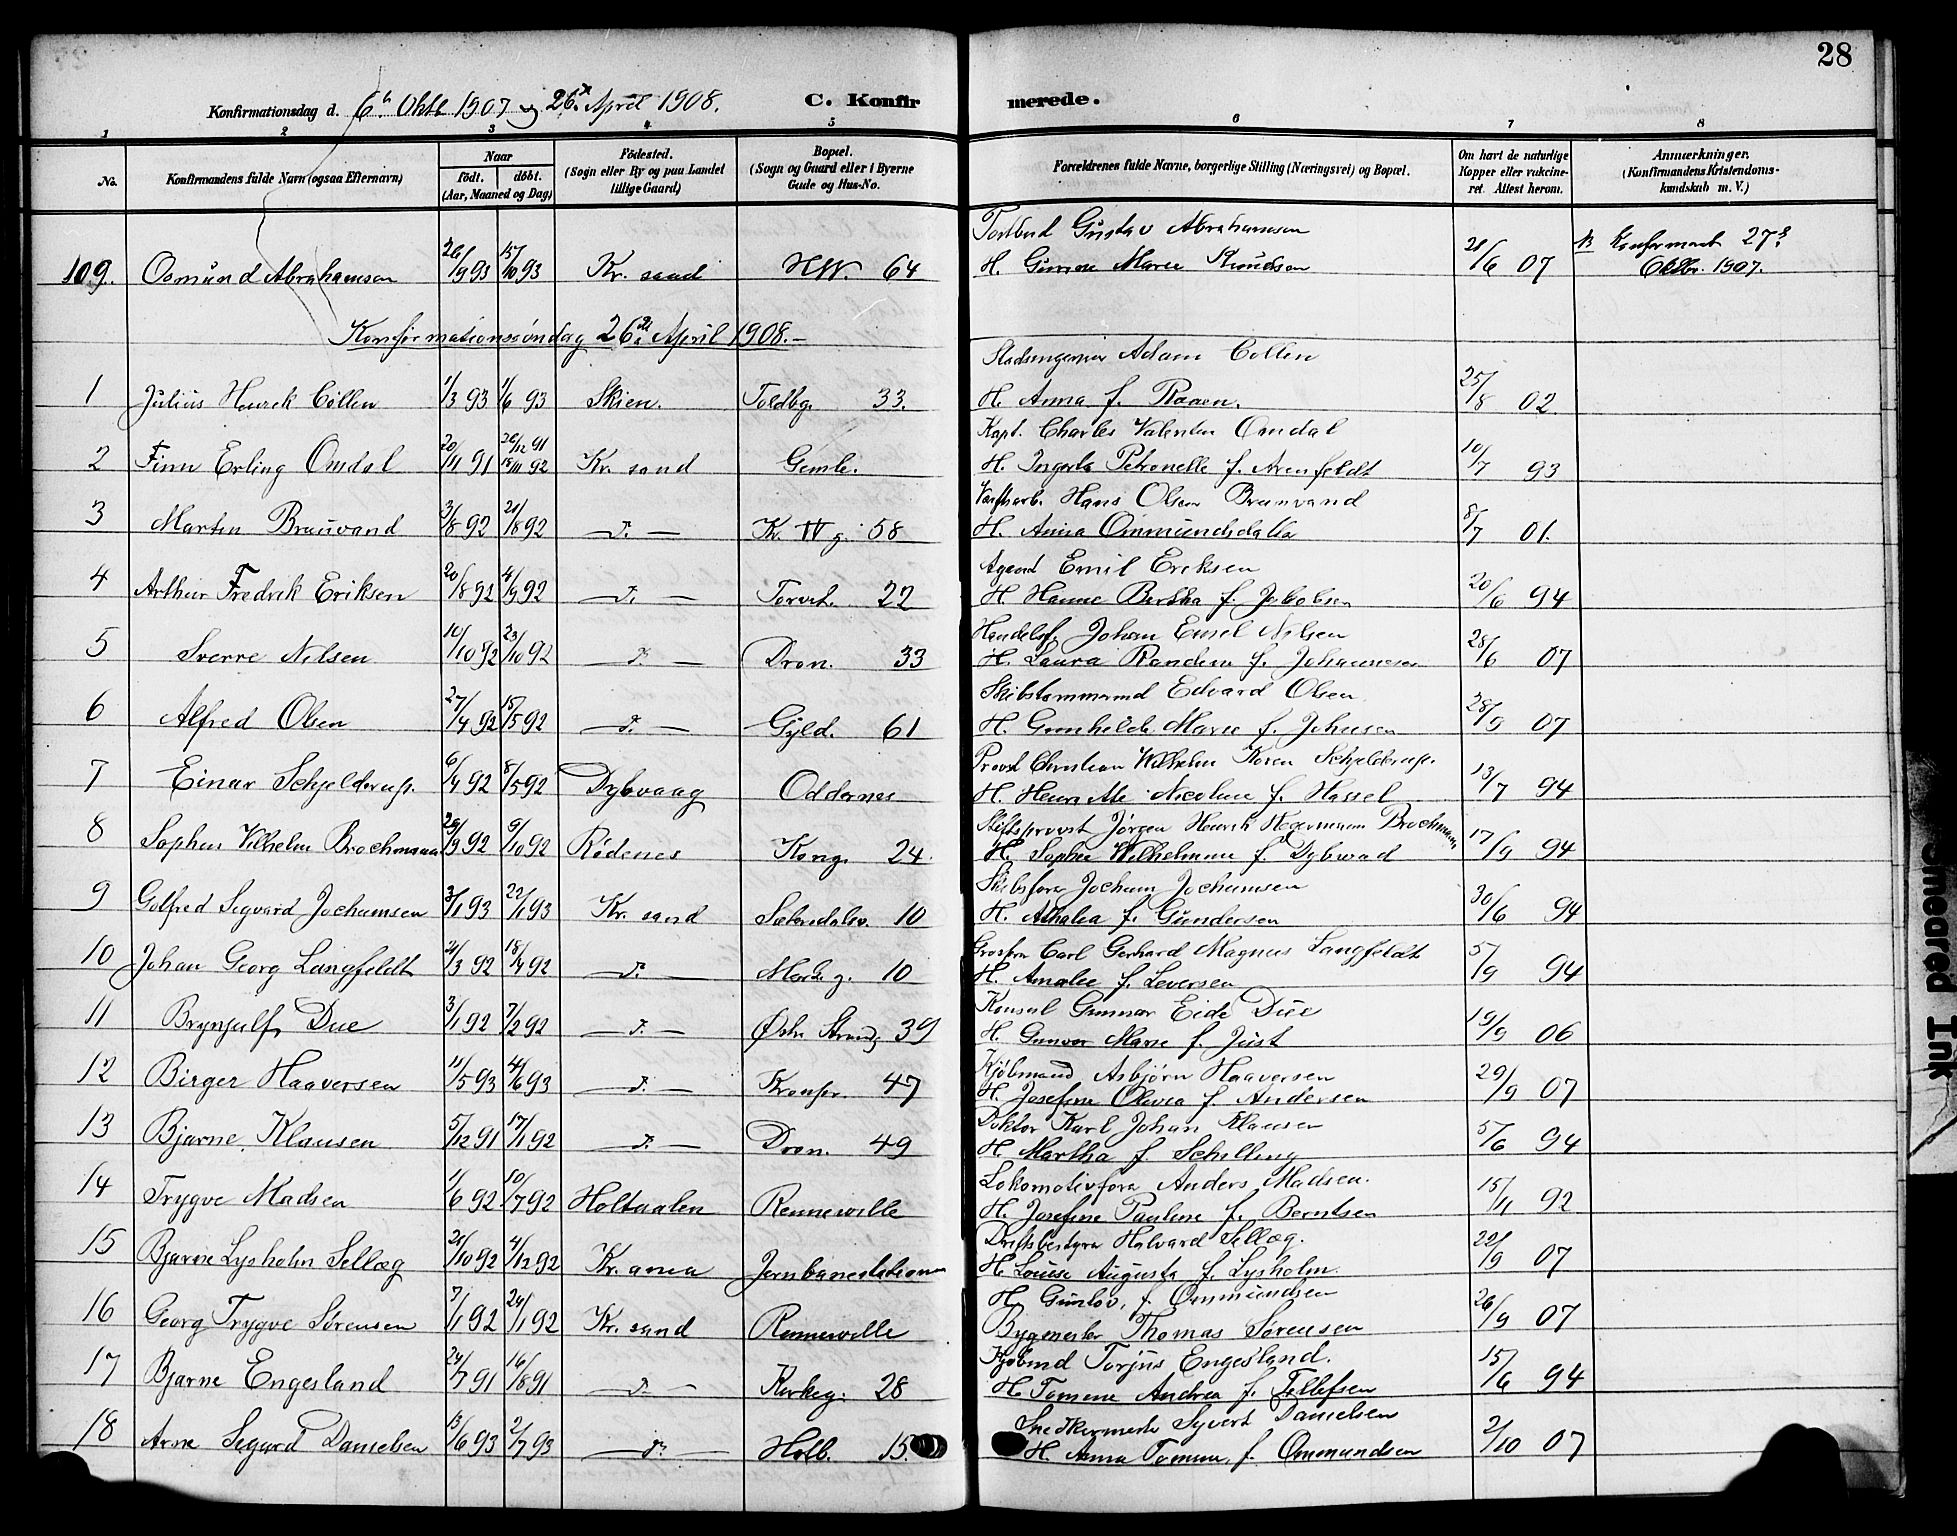 28
Konfirmationsdag d. 6te Oktb 1907 og 26de April 1908. C. Konfir merede.
1 2 3 4 5 6 7 8
No. Konfirmandens fulde Navn (ogsaa Efternavn) Naar født. døbt. (Aar, Maaned og Dag) Fødested. (Sogn eller By og paa Landet tillige Gaard) Bopæl. (Sogn og Gaard eller i Byerne Gade og Hus-No. Forældrenes fulde Navne, borgerlige Stilling (Næringsvei) og Bopæl. Om havt de naturlige Kopper eller vakcineret. Attest herom. Anmærkninger. (Konfirmandens Kristendomskundskab m. V.)
Toldbud Gustav Abrahamsen
109. Osmund Abrahamsen 26/9 93 15/10 93 Kr. sand H.W. 64 H. Marie Knudsen 21/6 07 Konfirmert 27de
Oktbr. 1907.
Konfirmationssøndag 26de April 1908.-
Stadsingeniør Adam Collin
1 Julius Henrik Collin 1/3 93 1/6 93 Skien. Toldbg. 33. H. Anna f. Raaen. 25/8 02.
Kapt. Charles Valentin Omdal
2 Finn Erling Omdal 20/11 91 26/12 91 18/11 92 Kr. sand Gemle. H. Petronelle f. Arenfeldt 10/7 93
Hans Olsen Brauvand
3 Martin Brauvand 3/8 92 21/8 92 D. — Kr. IV g. 58 H. Anna Ommundsdatter 8/7 01.
Agent Emil Eriksen
4 Arthur Fredrik Eriksen 20/8 92 4/9 92 — D. — Torvet. 22 H. Hanne Bertha f. Jakobsen 20/6 94
Handelsf. Johan Emil Nilsen
5 Sverre Nilsen 10/10 92 23/10 92 — D. — Dron. 33 H. Laura Randine f. Johannesen 28/6 07
Skibstømmermd Edvard Olsen
6 Alfred Olsen 27/4 92 15/5 92 — D. — Gyld. 61 H. Gunhilde Marie f. Johnsen 28/9 07
Provst Christian Wilhelm Koren Schjelderup.
7 Einar Schjelderup. 6/4 92 8/5 92 Dybvaag Oddernes H. Henriette Nicoline f. Hassel 13/7 94
Stiftsprovst Jörgen Henrik Hegermann Brochmann
8 Sophus Vilhelm Brochmann 28/9 92 9/10 92 Rødenes Kong. 24. H. Sophie Wilhelmine f. Dybwad 17/9 94
Skibsfører Jochum Jochumsen
9 Golfred Segvard Jochumsen 3/1 93 22/1 93 Kr. sand Sætersdalsv. 10 H. Athalia f. Gundersen 30/6 94
Grosserer Carl Gerhard Magnus Langfeldt
10 Johan Georg Langfeldt 21/3 92 18/4 92 — D. — Mark. g. 10 H. Amalie f. Leversen 5/9 94
Konsul Gunnar Eide Due
11 Brynjulf Due 3/1 92 7/2 92 — D. — Østr. Strandg 39 H. Gunvor Marie f. Just 19/9 06
Kjöbmand Asbjørn Haaversen
12 Birger Haaversen 11/5 93 4/6 93 — D. — Kronpr. 47 H. Josefine Olivia f. Andersen 29/9 07
Doktor Karl Johan Klausen
13 Bjarne Klausen 5/12 91 17/1 92 — D. — Dron. 49 H. Martha f. Schilling 5/6 94
Lokomotivfører Anders Madsen.
14 Trygve Madsen 1/6 92 10/7 92 Holtaalen Rennesville H. Josefine Pauline f. Berntsen 15/11 92
Driftsbestyrer Halvard Sellæg.
15 Bjarne Lysholm Sellæg 21/10 92 4/12 92 Kr. ania Jernbanestationen H. Louise Augusta f. Lysholm. 22/9 07
H. Gunlov, f. Ommundsen
16 Georg Trygve Sörensen 7/1 92 24/1 92 Kr. sand Rennesville Bygmester Thomas Sørensen 26/9 07
Kjøbmd Torjus Engesland.
17 Bjarne Engesland 24/7 91 16/8 91 — D. — Kirkeg. 28 H. Tomine Andrea f. Tellefsen 15/6 94
Snedkermester Syvert Danielsen
18 Arne Segurd Danielsen 13/6 93 2/7 93 — D. — Holb. 15. H. Anna Tomine f. Ommundsen 2/10 07
Smeared Ink